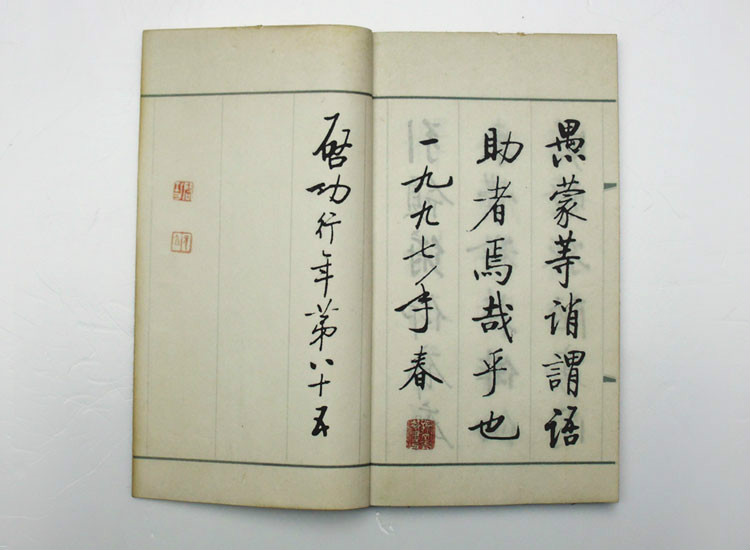 愚蒙等诮謂語
助者焉哉乎也
一九九七年春
启功行年第八十五